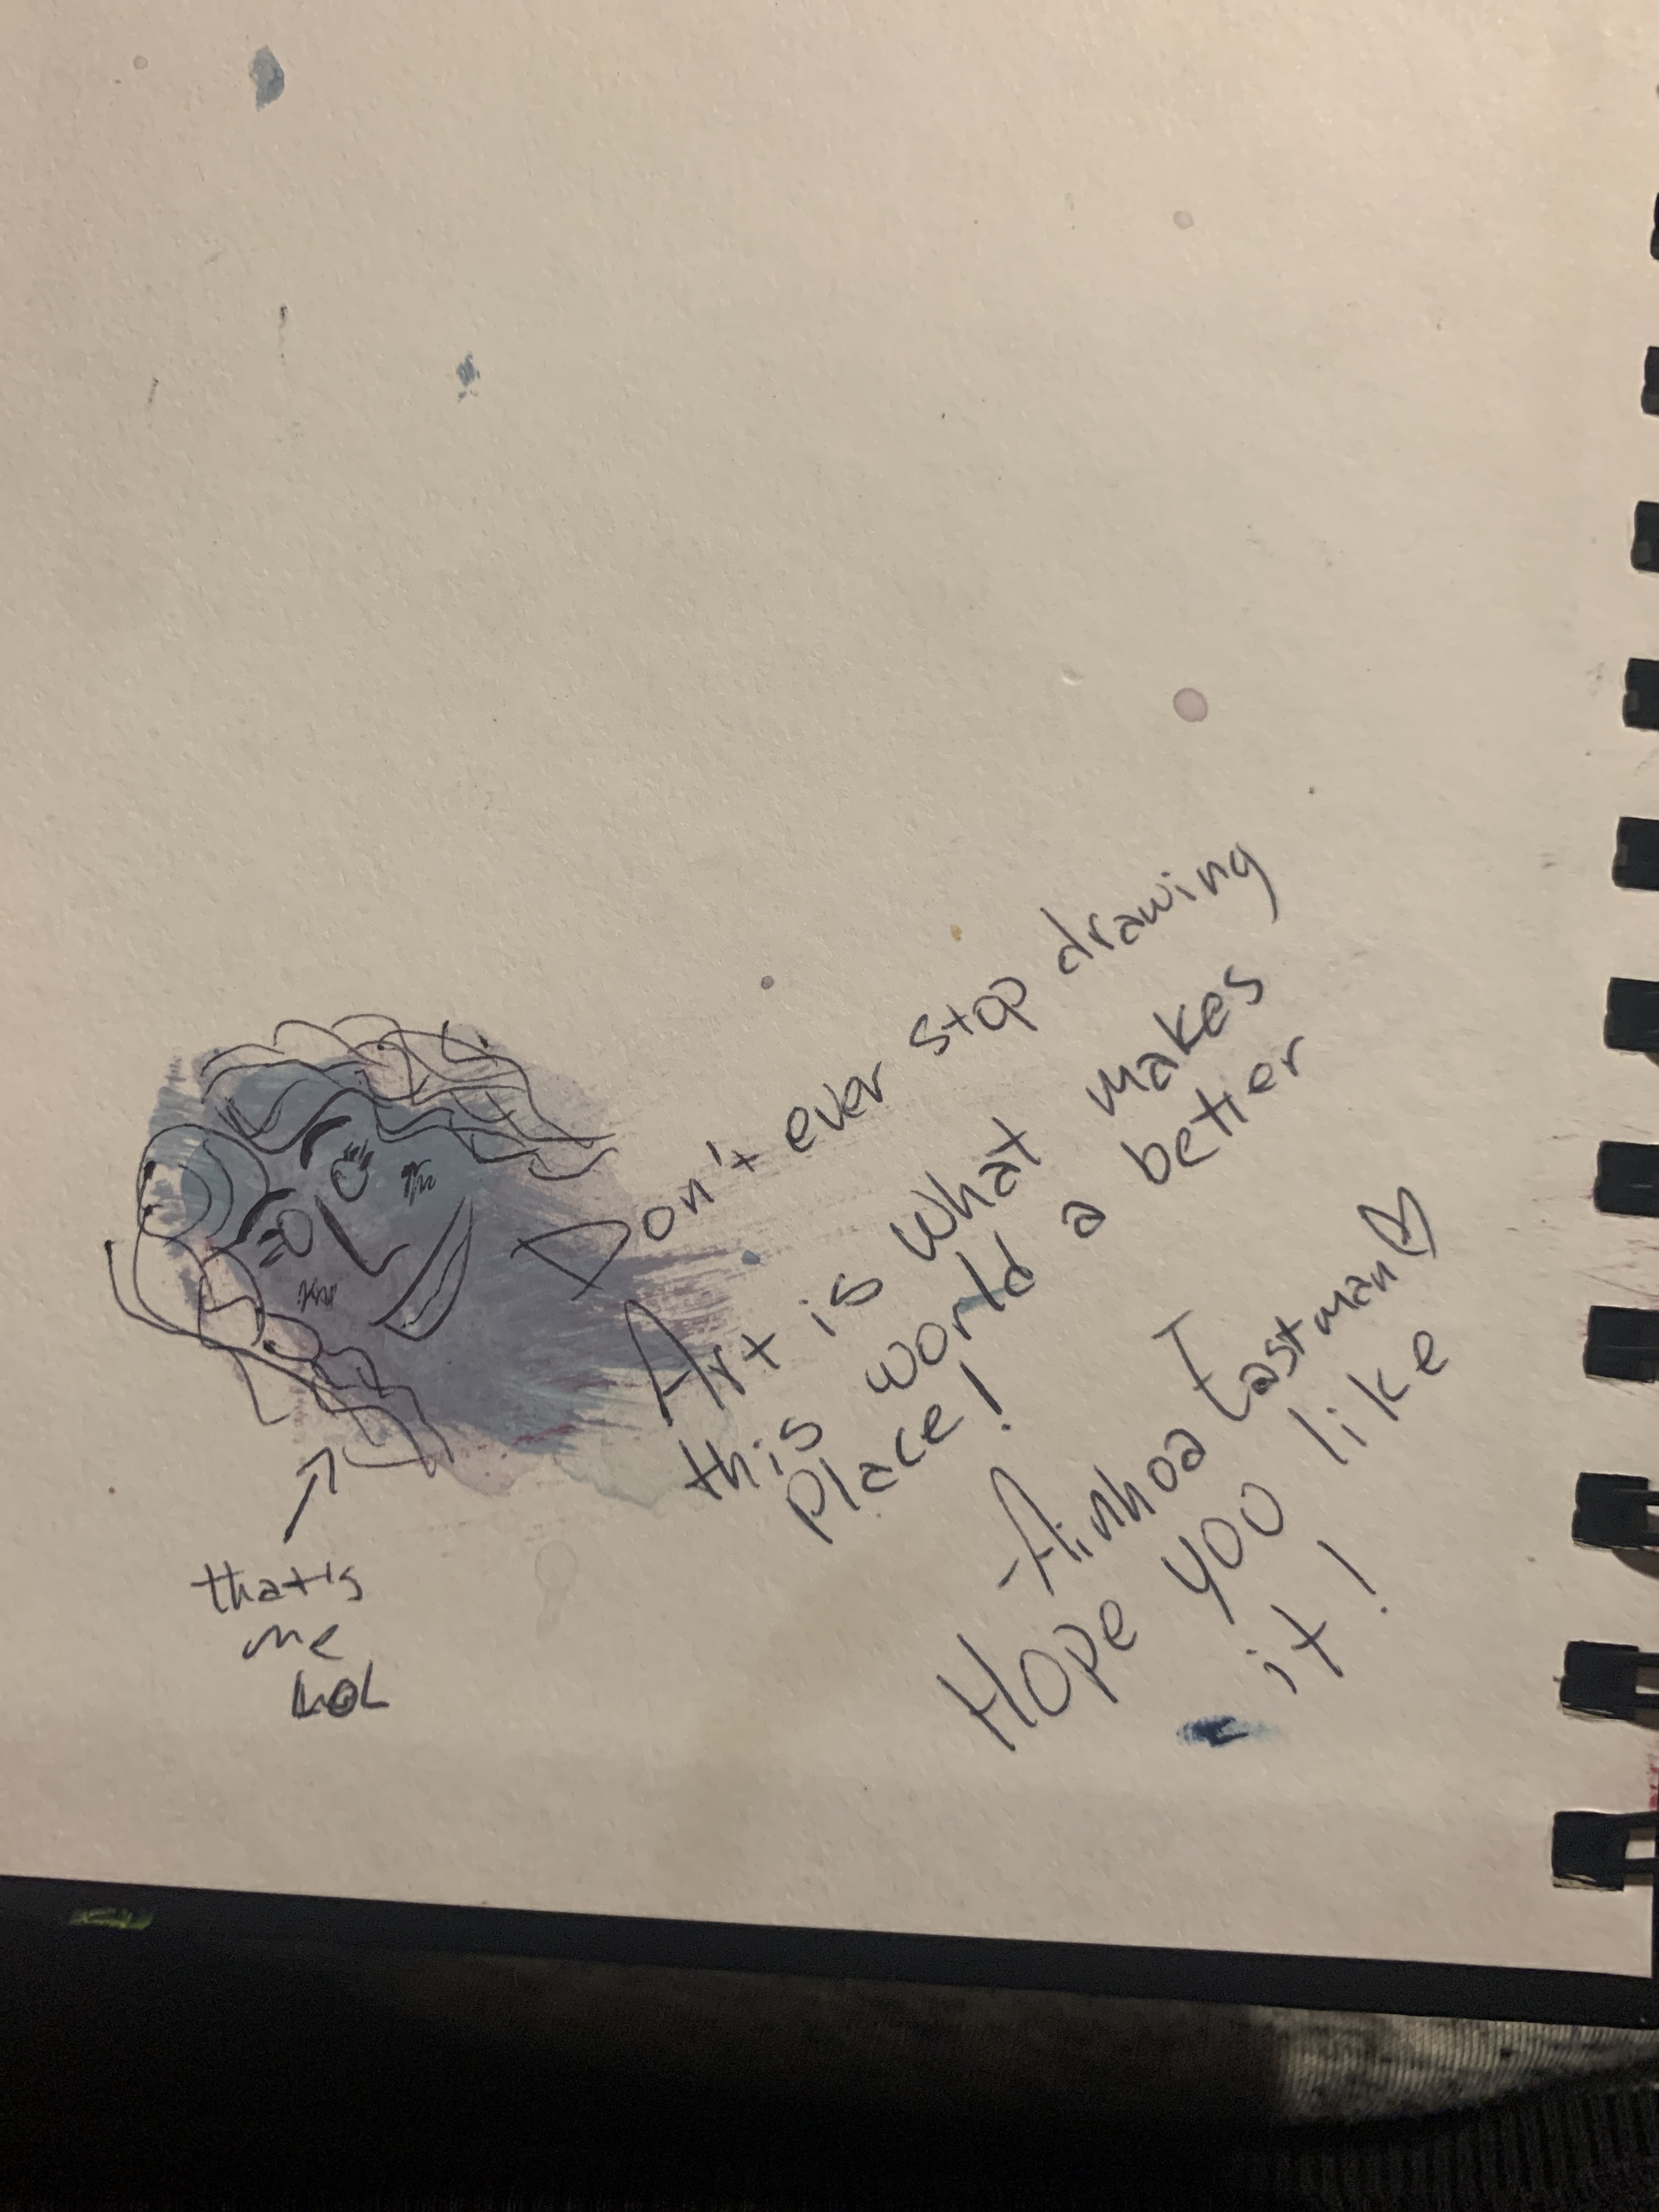 Don't ever stop drawing
Art is what makes
this world a better
place!
-Ainhoa Eastman
Hope you like
it!
that's
me
LOL